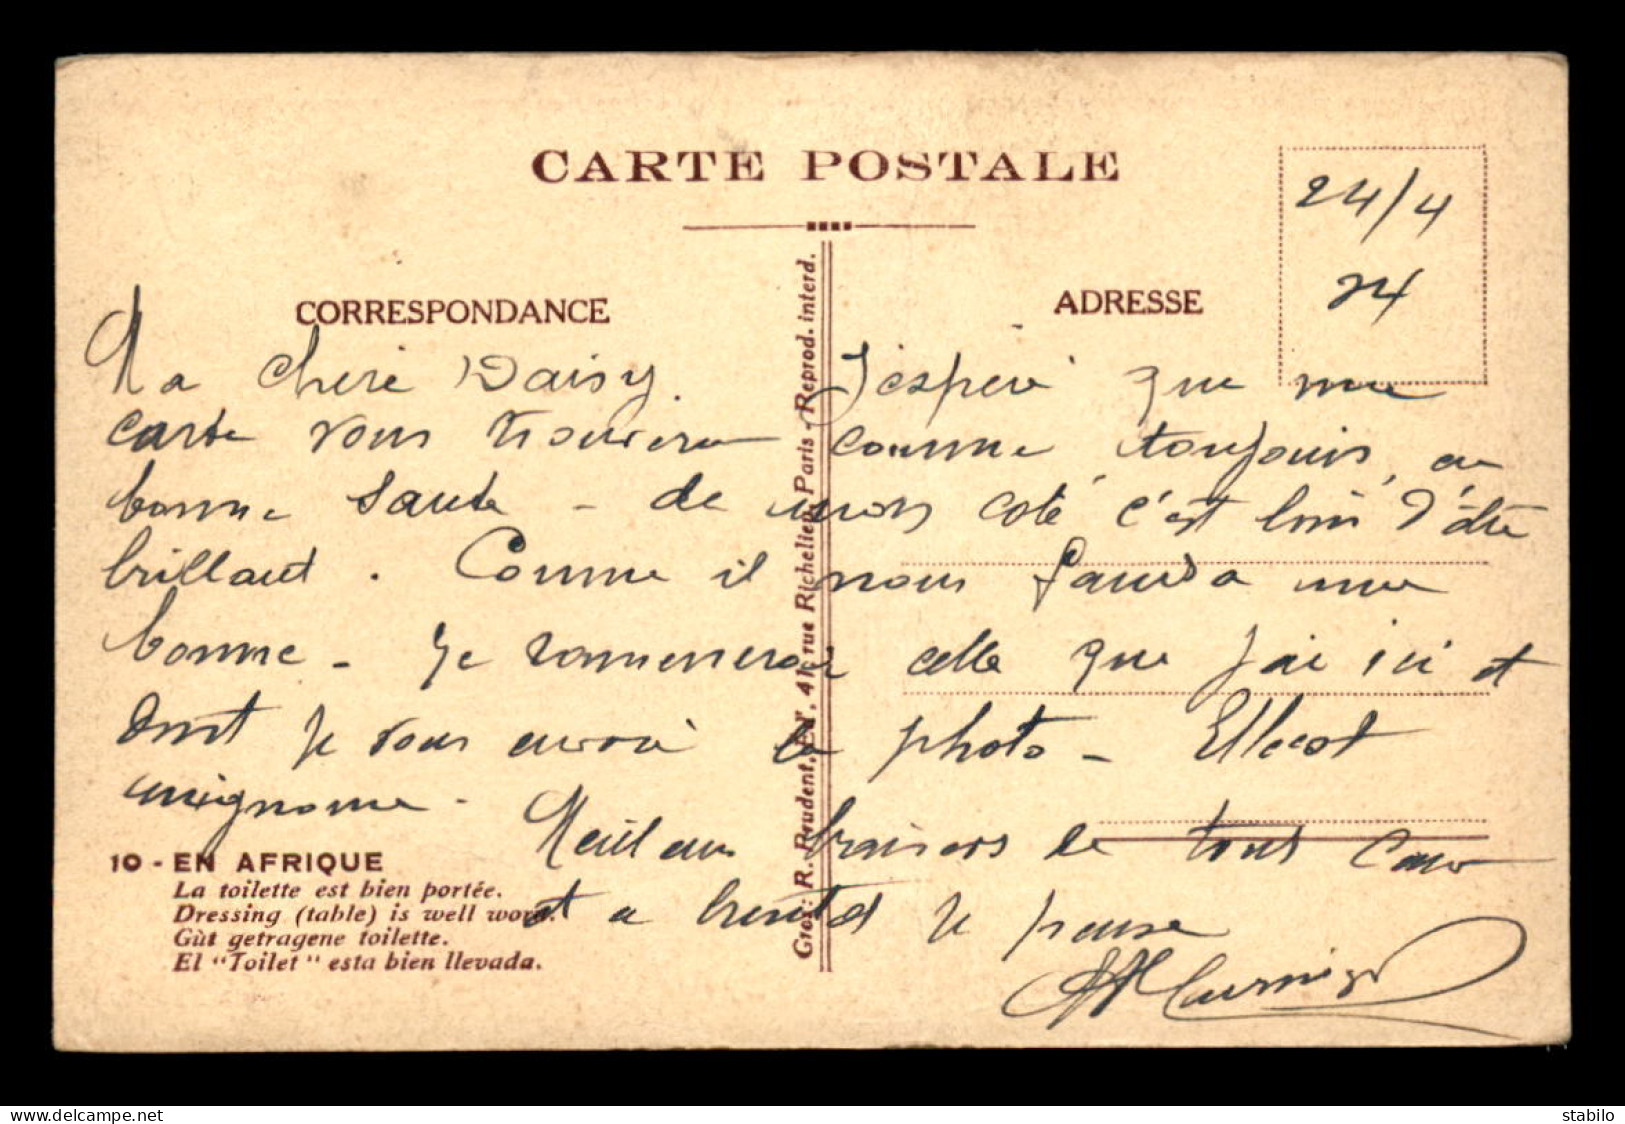 CARTE POSTALE
24/4
24
CORRESPONDANCE
ADRESSE
Ma chere Daisy. J'espere que ma
carte vous trouvera comme toujours, en
bonne sante - de mon coté, c'est loin d'être
brillant. Comme il nous faudra une
bonne - Je ramenerai celle que j'ai ici et
dont je vous envoi la photo - Elle est
mignonne -
Meilleurs baisers de tout cœur
et a bientot je pense
10 - EN AFRIQUE
La toilette est bien portée.
Dressing (table) is well worn.
Gùt getragene toilette.
El "Toilet" esta bien llevada.
Grox: R. Prudent, Edr, 41, rue Richelieu, Paris - Reprod. interd.
www.delcampe.net
stabilo